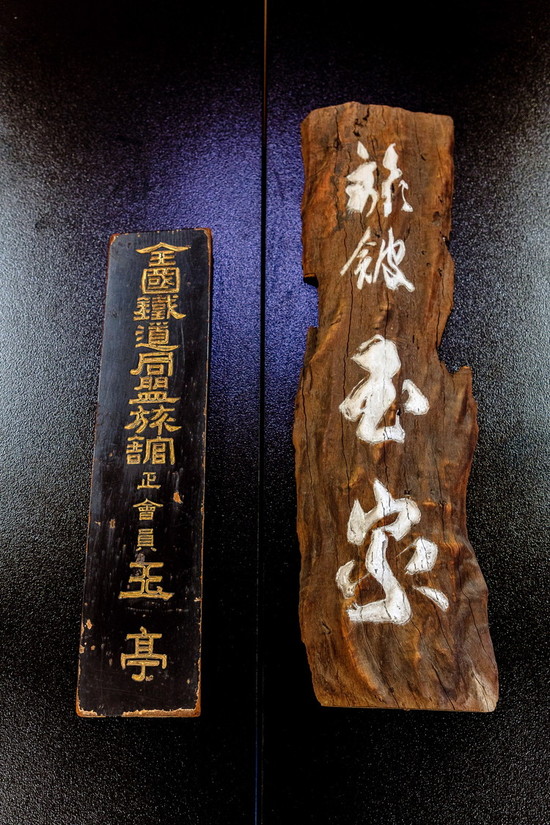 旅館 玉家
全國鐵道同盟旅舘 正會員 玉亭